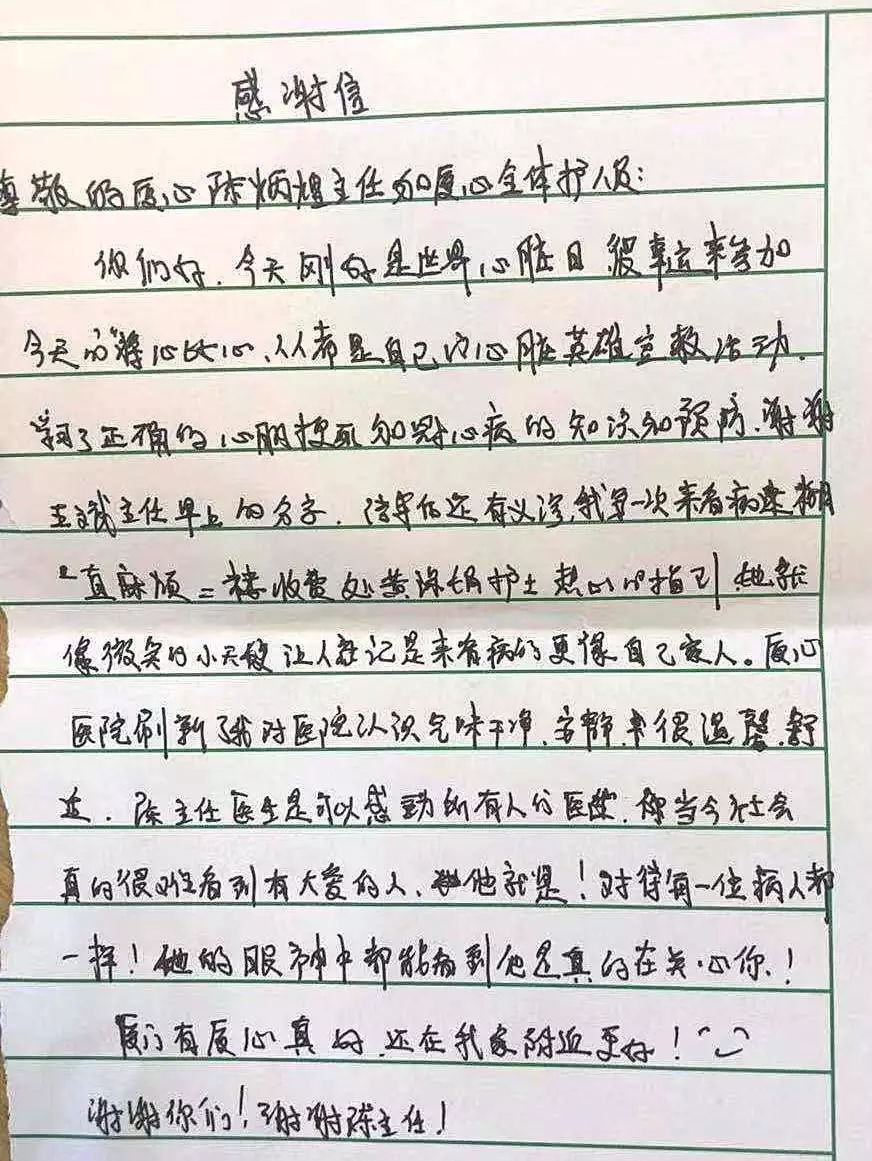 感谢信
尊敬的厦心陈炳煌主任和厦心全体护人员:
你们好.今天刚好是世界心脏日 很幸运来参加
今天的"将心比心、人人都是自己的心脏英雄"急救活动.
学习了正确的心肌梗死和冠心病的知识和预防、谢谢
主任早上的分字.还有我第一次来看病迷糊
真麻烦=楼收费处黄护士热心的指引 她就
像微笑的小天使让人忘记是来看病的更像自己家人。厦心
医院刷新了我对医院认识气味干净、安静、也很温馨、舒
适.陈主任医生是可以感动所有人的医生.你当今社会
真的很难看到有大爱的人、他就是!对待每一位病人都
一样!他的眼神中都能看到他是真的在关心你、!
厦门有厦心真好.还在我家附近更好!
谢谢你们!谢谢陈主任!